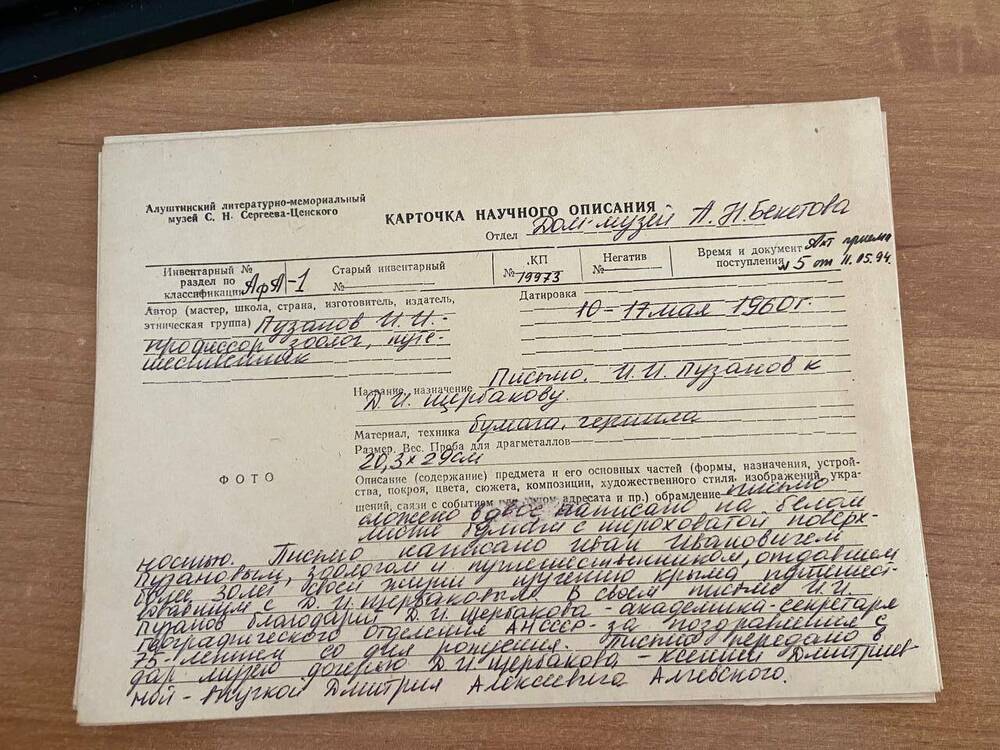 Алуштинский литературно-мемориальный
музей С. Н. Сергеева-Ценского
КАРТОЧКА НАУЧНОГО ОПИСАНИЯ
Отдел Дом-музей А.Н.Бекетова
Инвентарный №
раздел по
классификации АфА-1
Старый инвентарный
№
КП
№ 19973
Негатив
№
Время и документ Акт приема
поступления №5 от 11.05.94.
Автор (мастер, школа, страна, изготовитель, издатель,
этническая группа) Пузанов И.И.-
профессор зоолог, путе-
шественник
Датировка
10-17 мая 1960г.
Название, назначение Письмо. И.И. Пузанов к
Д.И. Щербакову.
Материал, техника бумага, чернила
Размер. Вес. Проба для драгметаллов
20,3×29см
ФОТО
Описание (содержание) предмета и его основных частей (формы, назначения, устрой-
ства, покроя, цвета, сюжета, композиции, художественного стиля, изображений, укра-
шений, связи с событием адресата и пр.) обрамление Письмо
сложено вдвое написано на белом
листе бумаги с шероховатой поверх-
ностью. Письмо написано Иван Ивановичем
Пузановым, зоологом и путешественником, отдавшим
более 30 лет своей жизни изучению Крыма путешест-
вовавшим с Д.И.Щербаковым. В своем письме И.И.
Пузанов благодарит Д.И. Щербакова - академика-секретаря
географического Отделения АНСССР - за поздравления с
75-летием со дня рождения. Письмо передано в
дар музею дочерью Д.И Щербакова - Ксенией Дмитриев-
ной - внучкой Дмитрия Алексеевича Алчевского.